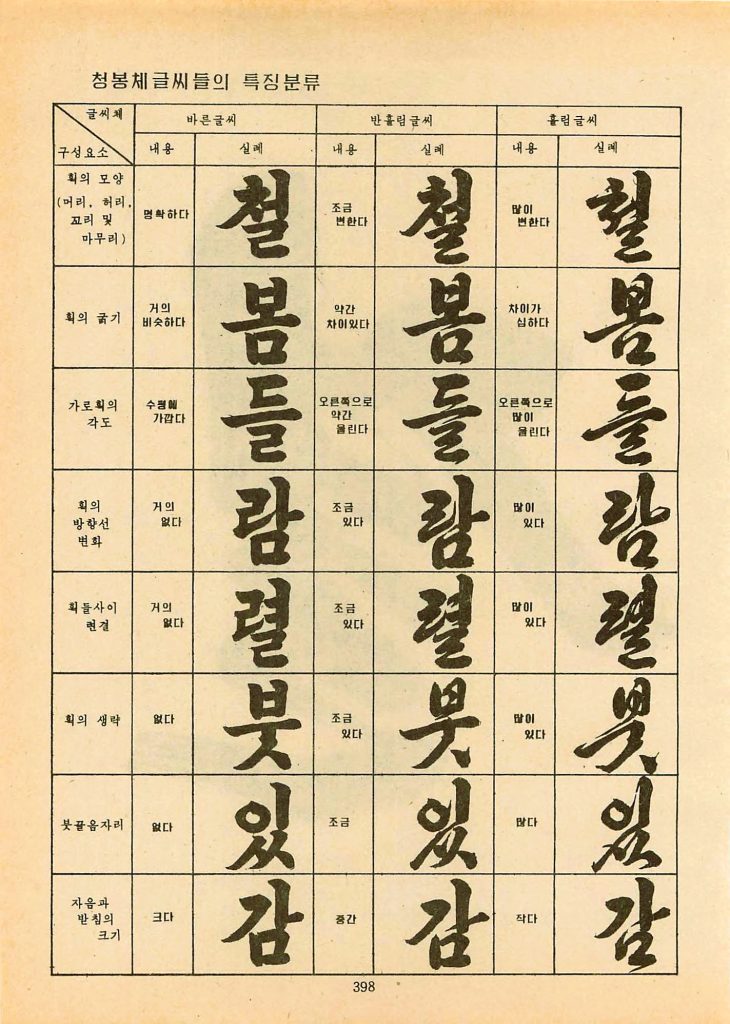 청봉체글씨들의 특징분류
글씨체
구성요소
바른글씨
반흘림글씨
흘림글씨
내용
실례
내용
실례
내용
실례
획의 모양
(머리, 허리,
꼬리 및
마무리)
명확하다
철
조금
변한다
철
많이
변한다
철
획의 굵기
거의
비슷하다
봄
약간
차이있다
봄
차이가
심하다
봄
가로획의
각도
수평에
가깝다
들
오른쪽으로
약간
올린다
들
오른쪽으로
많이
올린다
들
획의
방향선
변화
거의
없다
람
조금
있다
람
많이
있다
람
획들사이
련결
거의
없다
렬
조금
있다
렬
많이
있다
렬
획의 생략
없다
붓
조금
있다
붓
많이
있다
붓
붓끌음자리
없다
있
조금
있
많다
있
자음과
받침의
크기
크다
감
중간
감
작다
감
398